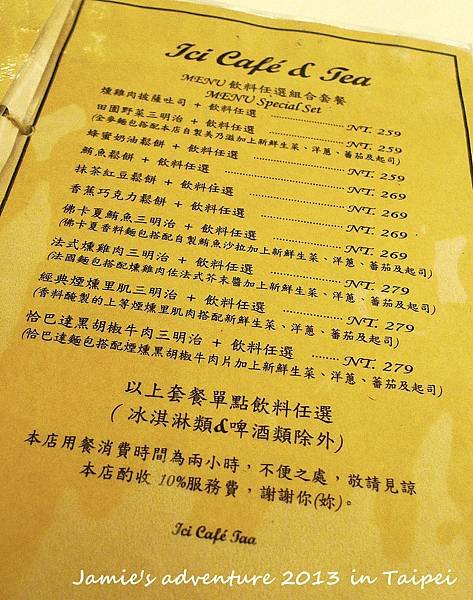 Ici Café & Tea
MENU 飲料任選組合套餐
MENU Special Set
燻雞肉披薩吐司 + 飲料任選 ........ NT. 259
田園野菜三明治 + 飲料任選 ........ NT. 259
(全麥麵包搭配本店自製美乃滋加上新鮮生菜、洋蔥、蕃茄及起司)
蜂蜜奶油鬆餅 + 飲料任選 ........ NT. 259
鮪魚鬆餅 + 飲料任選 ........ NT. 269
抹茶紅豆鬆餅 + 飲料任選 ........ NT. 269
香蕉巧克力鬆餅 + 飲料任選 ........ NT. 269
佛卡夏鮪魚三明治 + 飲料任選 ........ NT. 269
(佛卡夏香料麵包搭配自製鮪魚沙拉加上新鮮生菜、洋蔥、蕃茄及起司)
法式燻雞肉三明治 + 飲料任選 ........ NT. 279
(法國麵包搭配燻雞肉佐法式芥末醬加上新鮮生菜、洋蔥、蕃茄及起司)
經典煙燻里肌三明治 + 飲料任選 ........ NT. 279
(香料醃製的上等煙燻里肌肉搭配新鮮生菜、洋蔥、蕃茄及起司)
恰巴達黑胡椒牛肉三明治 + 飲料任選 ........ NT. 279
(恰巴達麵包搭配煙燻黑胡椒牛肉片加上新鮮生菜、洋蔥、蕃茄及起司)
以上套餐單點飲料任選
(冰淇淋類&啤酒類除外)
本店用餐消費時間為兩小時，不便之處，敬請見諒
本店酌收 10%服務費，謝謝你(妳)。
Ici Café Taa
Jamie's adventure 2013 in Taipei